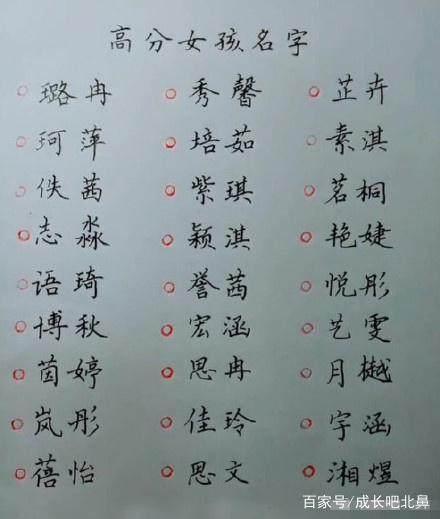 高分女孩名字
璐冉 秀馨 芷卉
珂萍 培茹 素淇
佚茜 紫琪 茗桐
志淼 颖淇 艳婕
语琦 誉茜 悦彤
博秋 宏涵 艺雯
茵婷 思冉 月樾
岚彤 佳玲 宇涵
蓓怡 思文 湘煜
百家号/成长吧北鼻